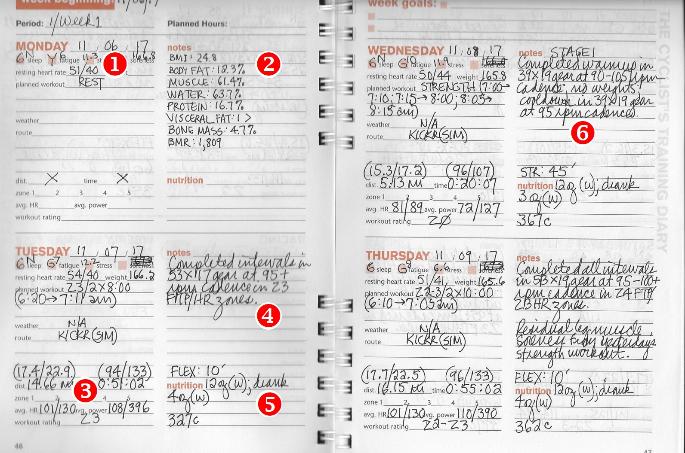 week beginning:
Period: 1/Week 1
Planned Hours:
MONDAY 11 06 17
sleep fatigue stress
resting heart rate 51/40
planned workout REST
weather
route
dist. X time X
zone 1 2 3 4 5
avg. HR avg. power
workout rating
1
notes
BMI: 24.8
BODY FAT: 12.3%
MUSCLE: 61.4%
WATER: 63.7%
PROTEIN: 16.7%
VISCERAL FAT: 1 >
BONE MASS: 4.7%
BMR: 1,809
nutrition
2
TUESDAY 11 07 17
sleep fatigue stress
resting heart rate 54/40 weight 166.2
planned workout Z3/2X8:00
(6:20→7:17am)
weather N/A
route KICKR(SIM)
(17.4/22.9) (94/133)
dist. 14.66 mi time 0:51:02
zone 1 2 3 4 5
avg. HR 101/130 avg. power 108/396
workout rating Z3
3
notes
Completed intervals in
53X17 gear at 95+
rpm cadence in Z3
FTP/HR zones.
4
FLEX: 10'
nutrition 12oz(w); drank
4oz(w)
327c
5
46
week goals:
WEDNESDAY 11 08 17
sleep fatigue stress
resting heart rate 50/44 weight 165.8
planned workout STRENGTH (7:00→
7:10; 7:15→8:00; 8:05→
8:15am)
weather N/A
route KICKR(SIM)
(15.3/17.2) (96/107)
dist. 5.13 mi time 0:20:07
zone 1 2 3 4 5
avg. HR 81/89 avg. power 72/127
workout rating ZØ
notes STAGE1
Completed warmup in
39X19 gear at 90-105 rpm
cadence, no weights,
cooldown in 39X19 gear
at 95 rpm cadences.
6
STR: 45'
nutrition 12oz(w); drank
3oz(w)
367c
THURSDAY 11 09 17
sleep fatigue stress
resting heart rate 51/41 weight 165.6
planned workout Z2-3/2X10:00
(6:10→7:05am)
weather N/A
route KICKR(SIM)
(17.7/22.5) (96/133)
dist. 16.15 mi time 0:55:02
zone 1 2 3 4 5
avg. HR 101/131 avg. power 110/390
workout rating Z2-Z3
notes
Completed all intervals
in 53X19 gear at 95-100+
rpm cadence in Z4 FTP/
Z3 HR zones.
Residual leg muscle
soreness from yesterdays
strength workout.
FLEX: 10'
nutrition 12oz(w); drank
4oz(w)
362c
47
THE CYCLIST'S TRAINING DIARY